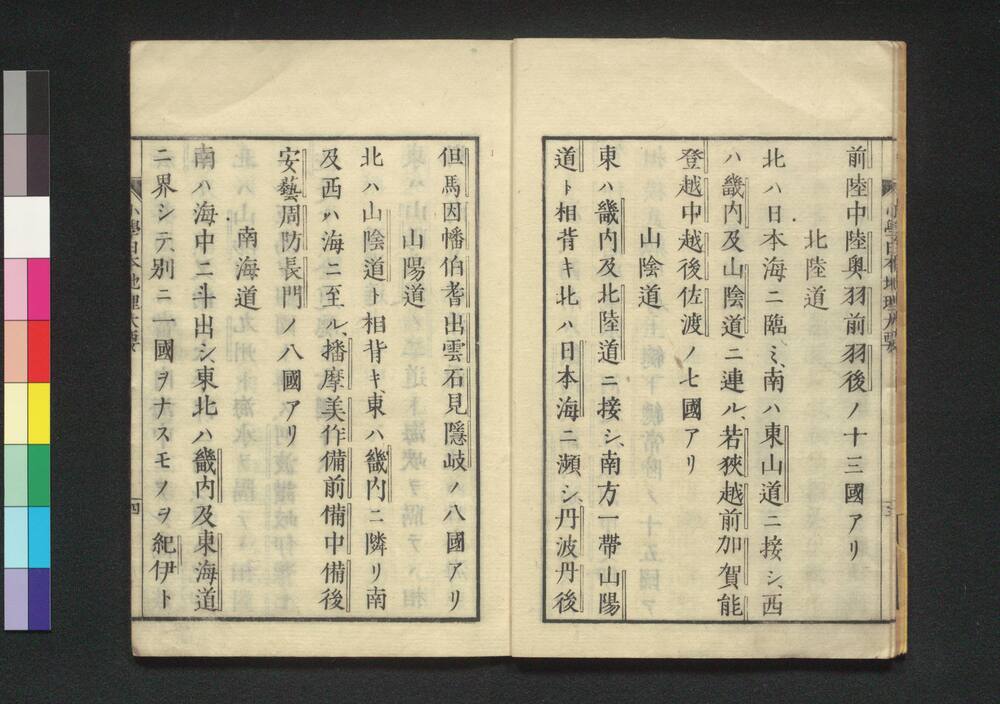 前陸中陸奥羽前羽後ノ十三國アリ
北陸道
北ハ日本海ニ臨ミ、南ハ東山道ニ接シ、西
ハ畿内及山陰道ニ連ル、若狹越前加賀能
登越中越後佐渡ノ七國アリ
山陰道
東ハ畿内及北陸道ニ接シ、南方一帶山陽
道ト相背キ北ハ日本海ニ瀕シ、丹波丹後
但馬因幡伯耆出雲石見隱岐ノ八國アリ
山陽道
北ハ山陰道ト相背キ、東ハ畿内ニ隣リ南
及西ハ海ニ至ル、播摩美作備前備中備後
安藝周防長門ノ八國アリ
南海道
南ハ海中ニ斗出シ、東北ハ畿内及東海道
ニ界シテ、別ニ一國ヲナスモノヲ紀伊ト
小學日本地理大要
四